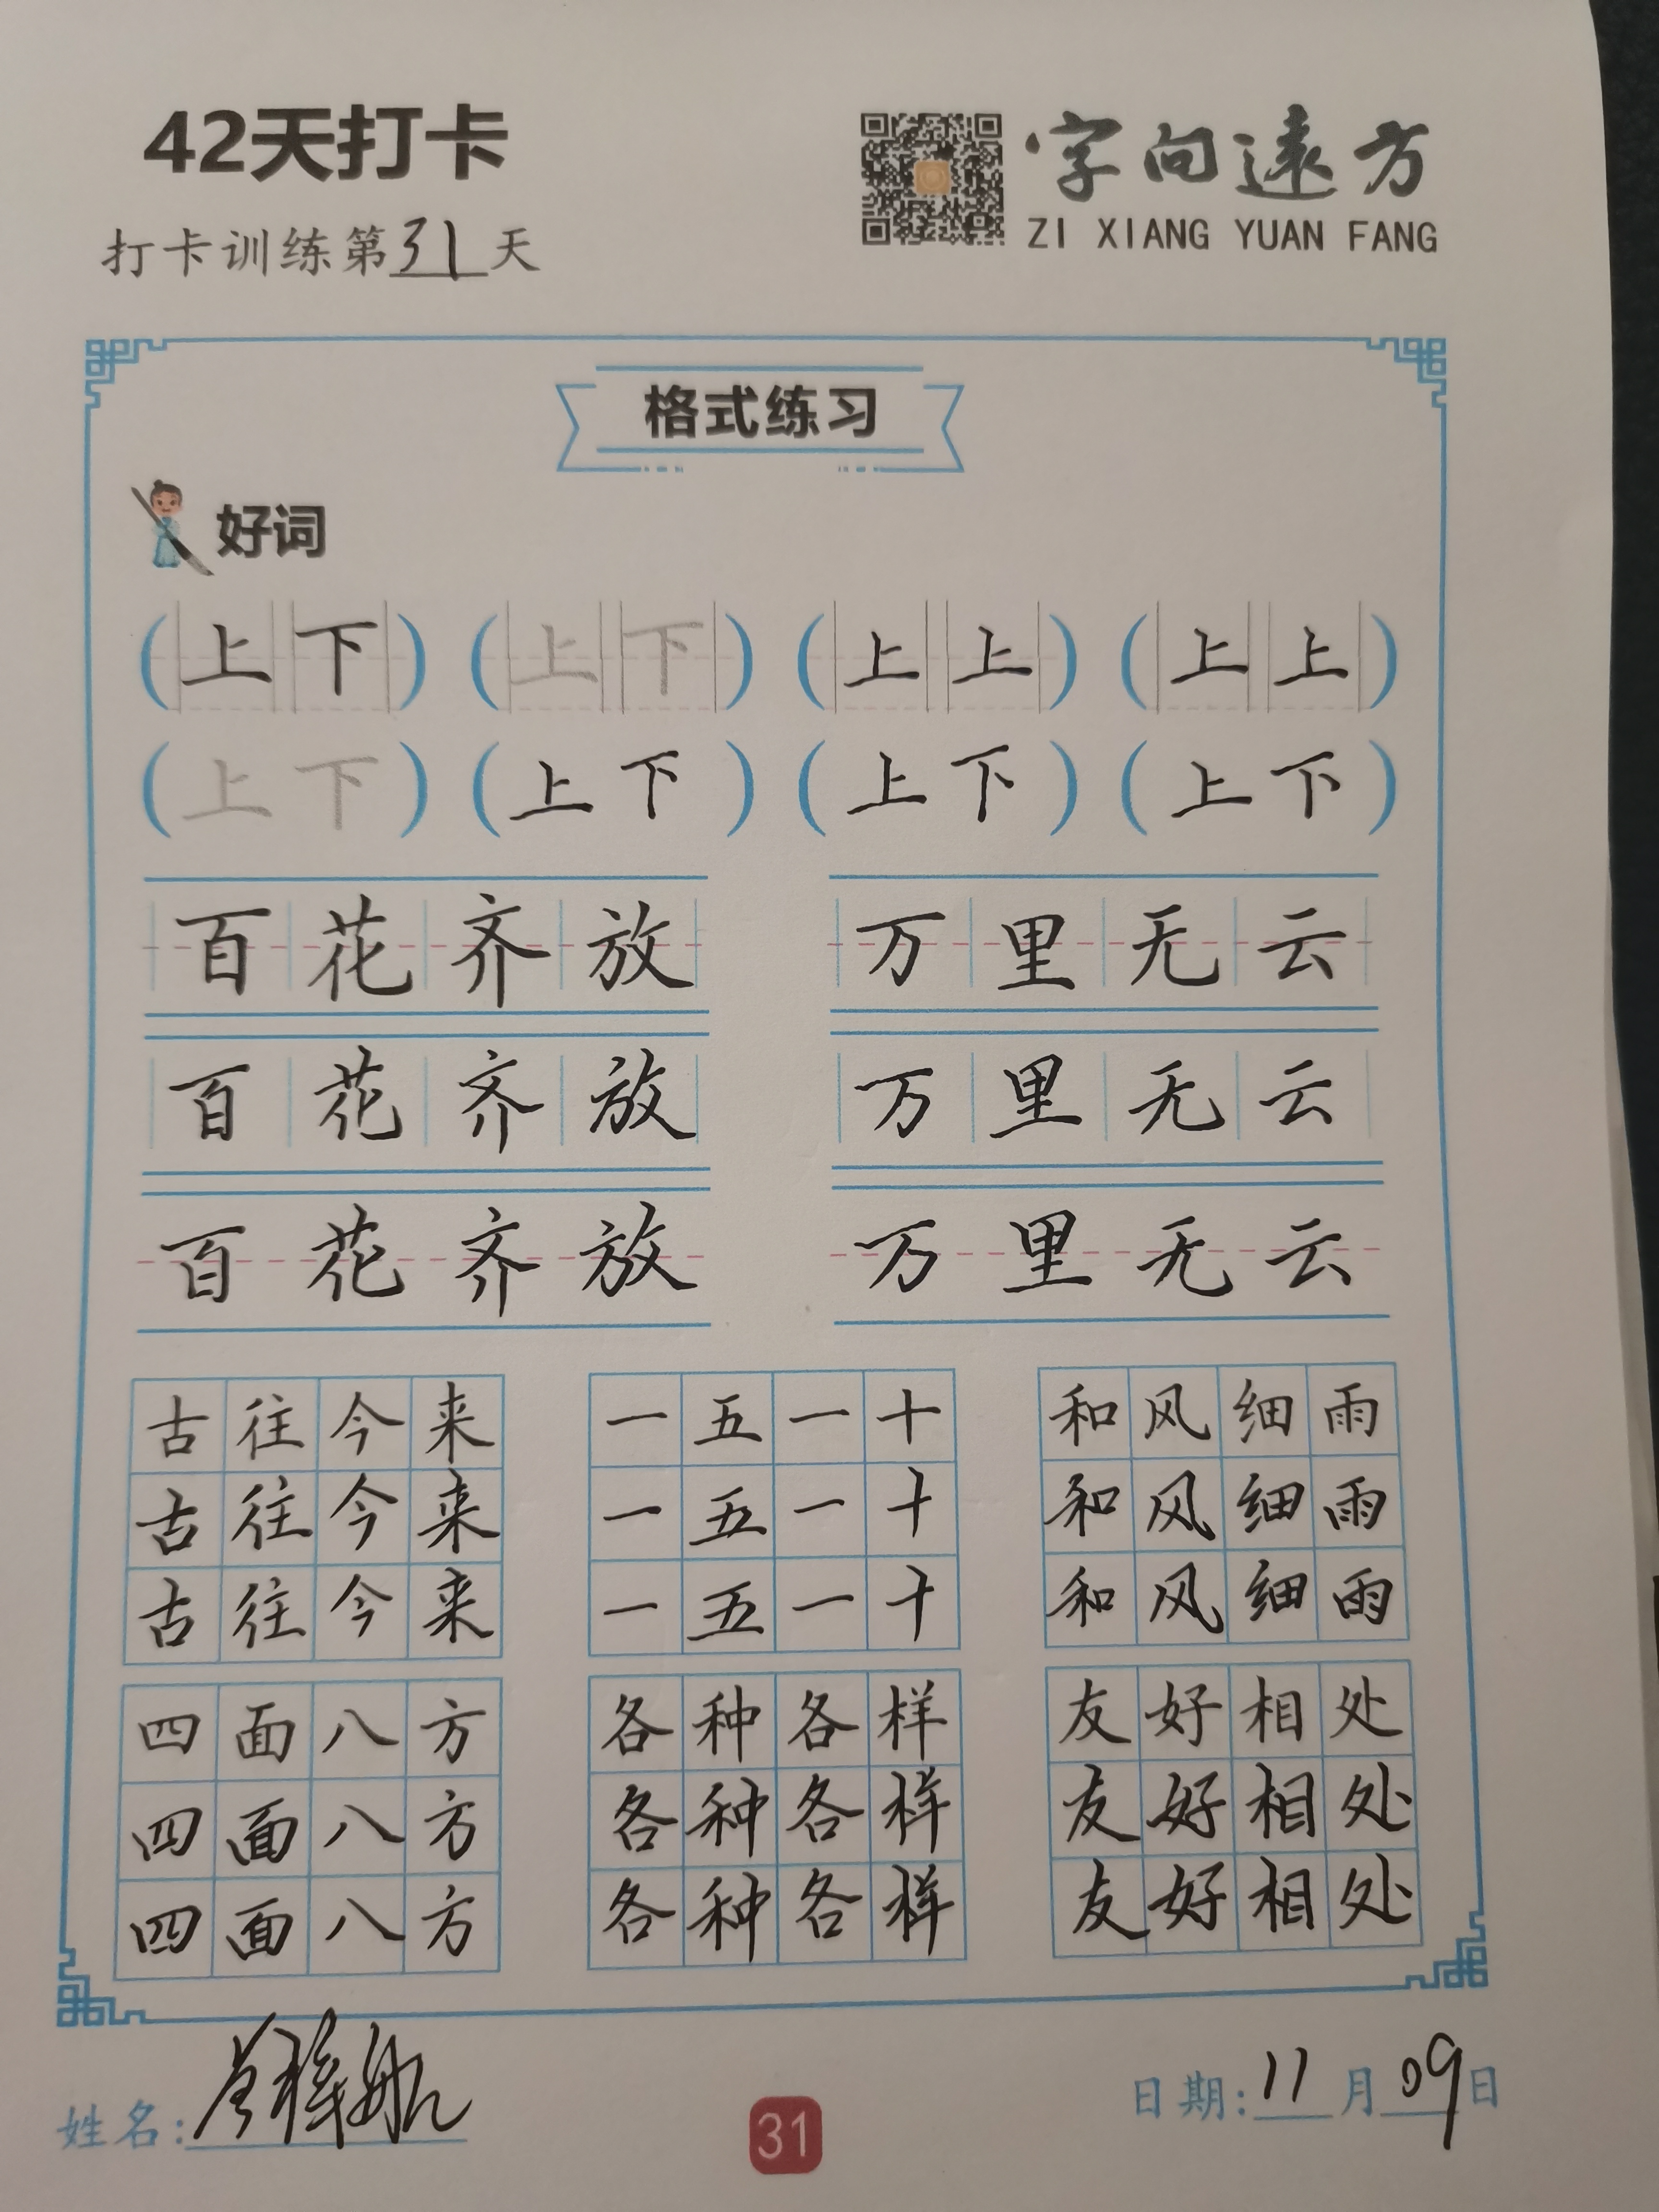 42天打卡
字向遠方
ZI XIANG YUAN FANG
打卡训练第31天
格式练习
好词
(上下) (上下) (上上) (上上)
(上下) (上下) (上下) (上下)
百花齐放 万里无云
百花齐放 万里无云
百花齐放 万里无云
古往今来 一五一十 和风细雨
古往今来 一五一十 和风细雨
古往今来 一五一十 和风细雨
四面八方 各种各样 友好相处
四面八方 各种各样 友好相处
四面八方 各种各样 友好相处
姓名:
31
日期:11月09日